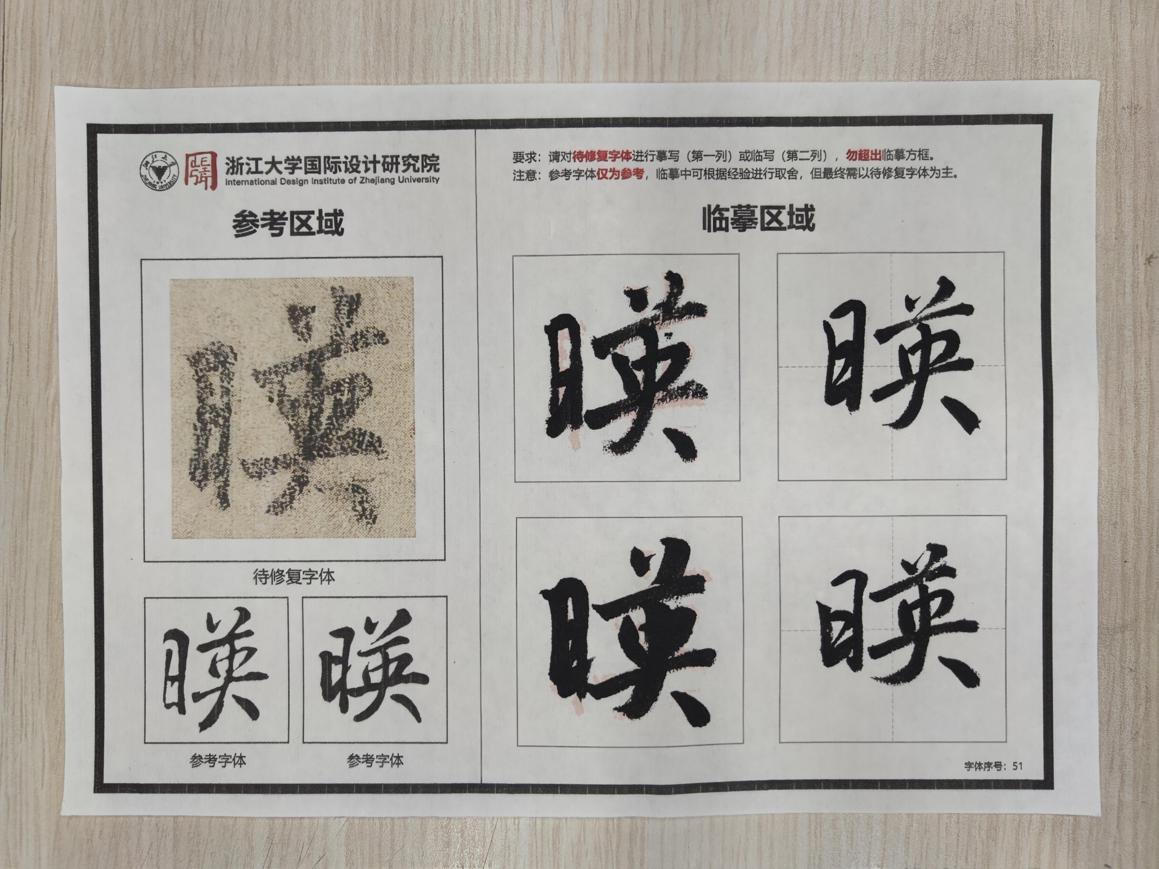 浙江大学国际设计研究院
International Design Institute of Zhejiang University
参考区域
暎
待修复字体
暎 暎
参考字体 参考字体
要求：请对待修复字体进行摹写（第一列）或临写（第二列），勿超出临摹方框。
注意：参考字体仅为参考，临摹中可根据经验进行取舍，但最终需以待修复字体为主。
临摹区域
暎 暎
暎 暎
字体序号：51